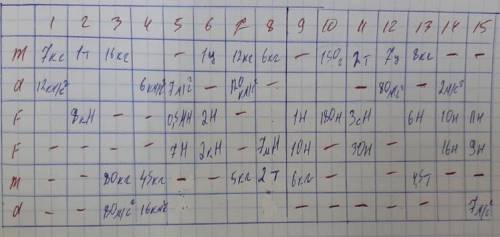 1 2 3 4 5 6 7 8 9 10 11 12 13 14 15
m 7кг 1т 16кг - 1ц 12кг 6кг - 150г 2т 7ц 8кг - -
a 12км/с² 6км/с² 7м/с² - - - - 80м/с² - 2м/с²
F - 8кН - - 0,5МН 2Н - - 1Н 180Н - 6Н 10Н ПН
F - - - - 7Н 2кН - 7мН 10Н - 30Н 16Н 9Н
m - - 80кг 45кг - - 5кг 2т 6кг - - - 1,5т - -
a - - 80м/с² 16км/с² - - - - - - 7м/с²